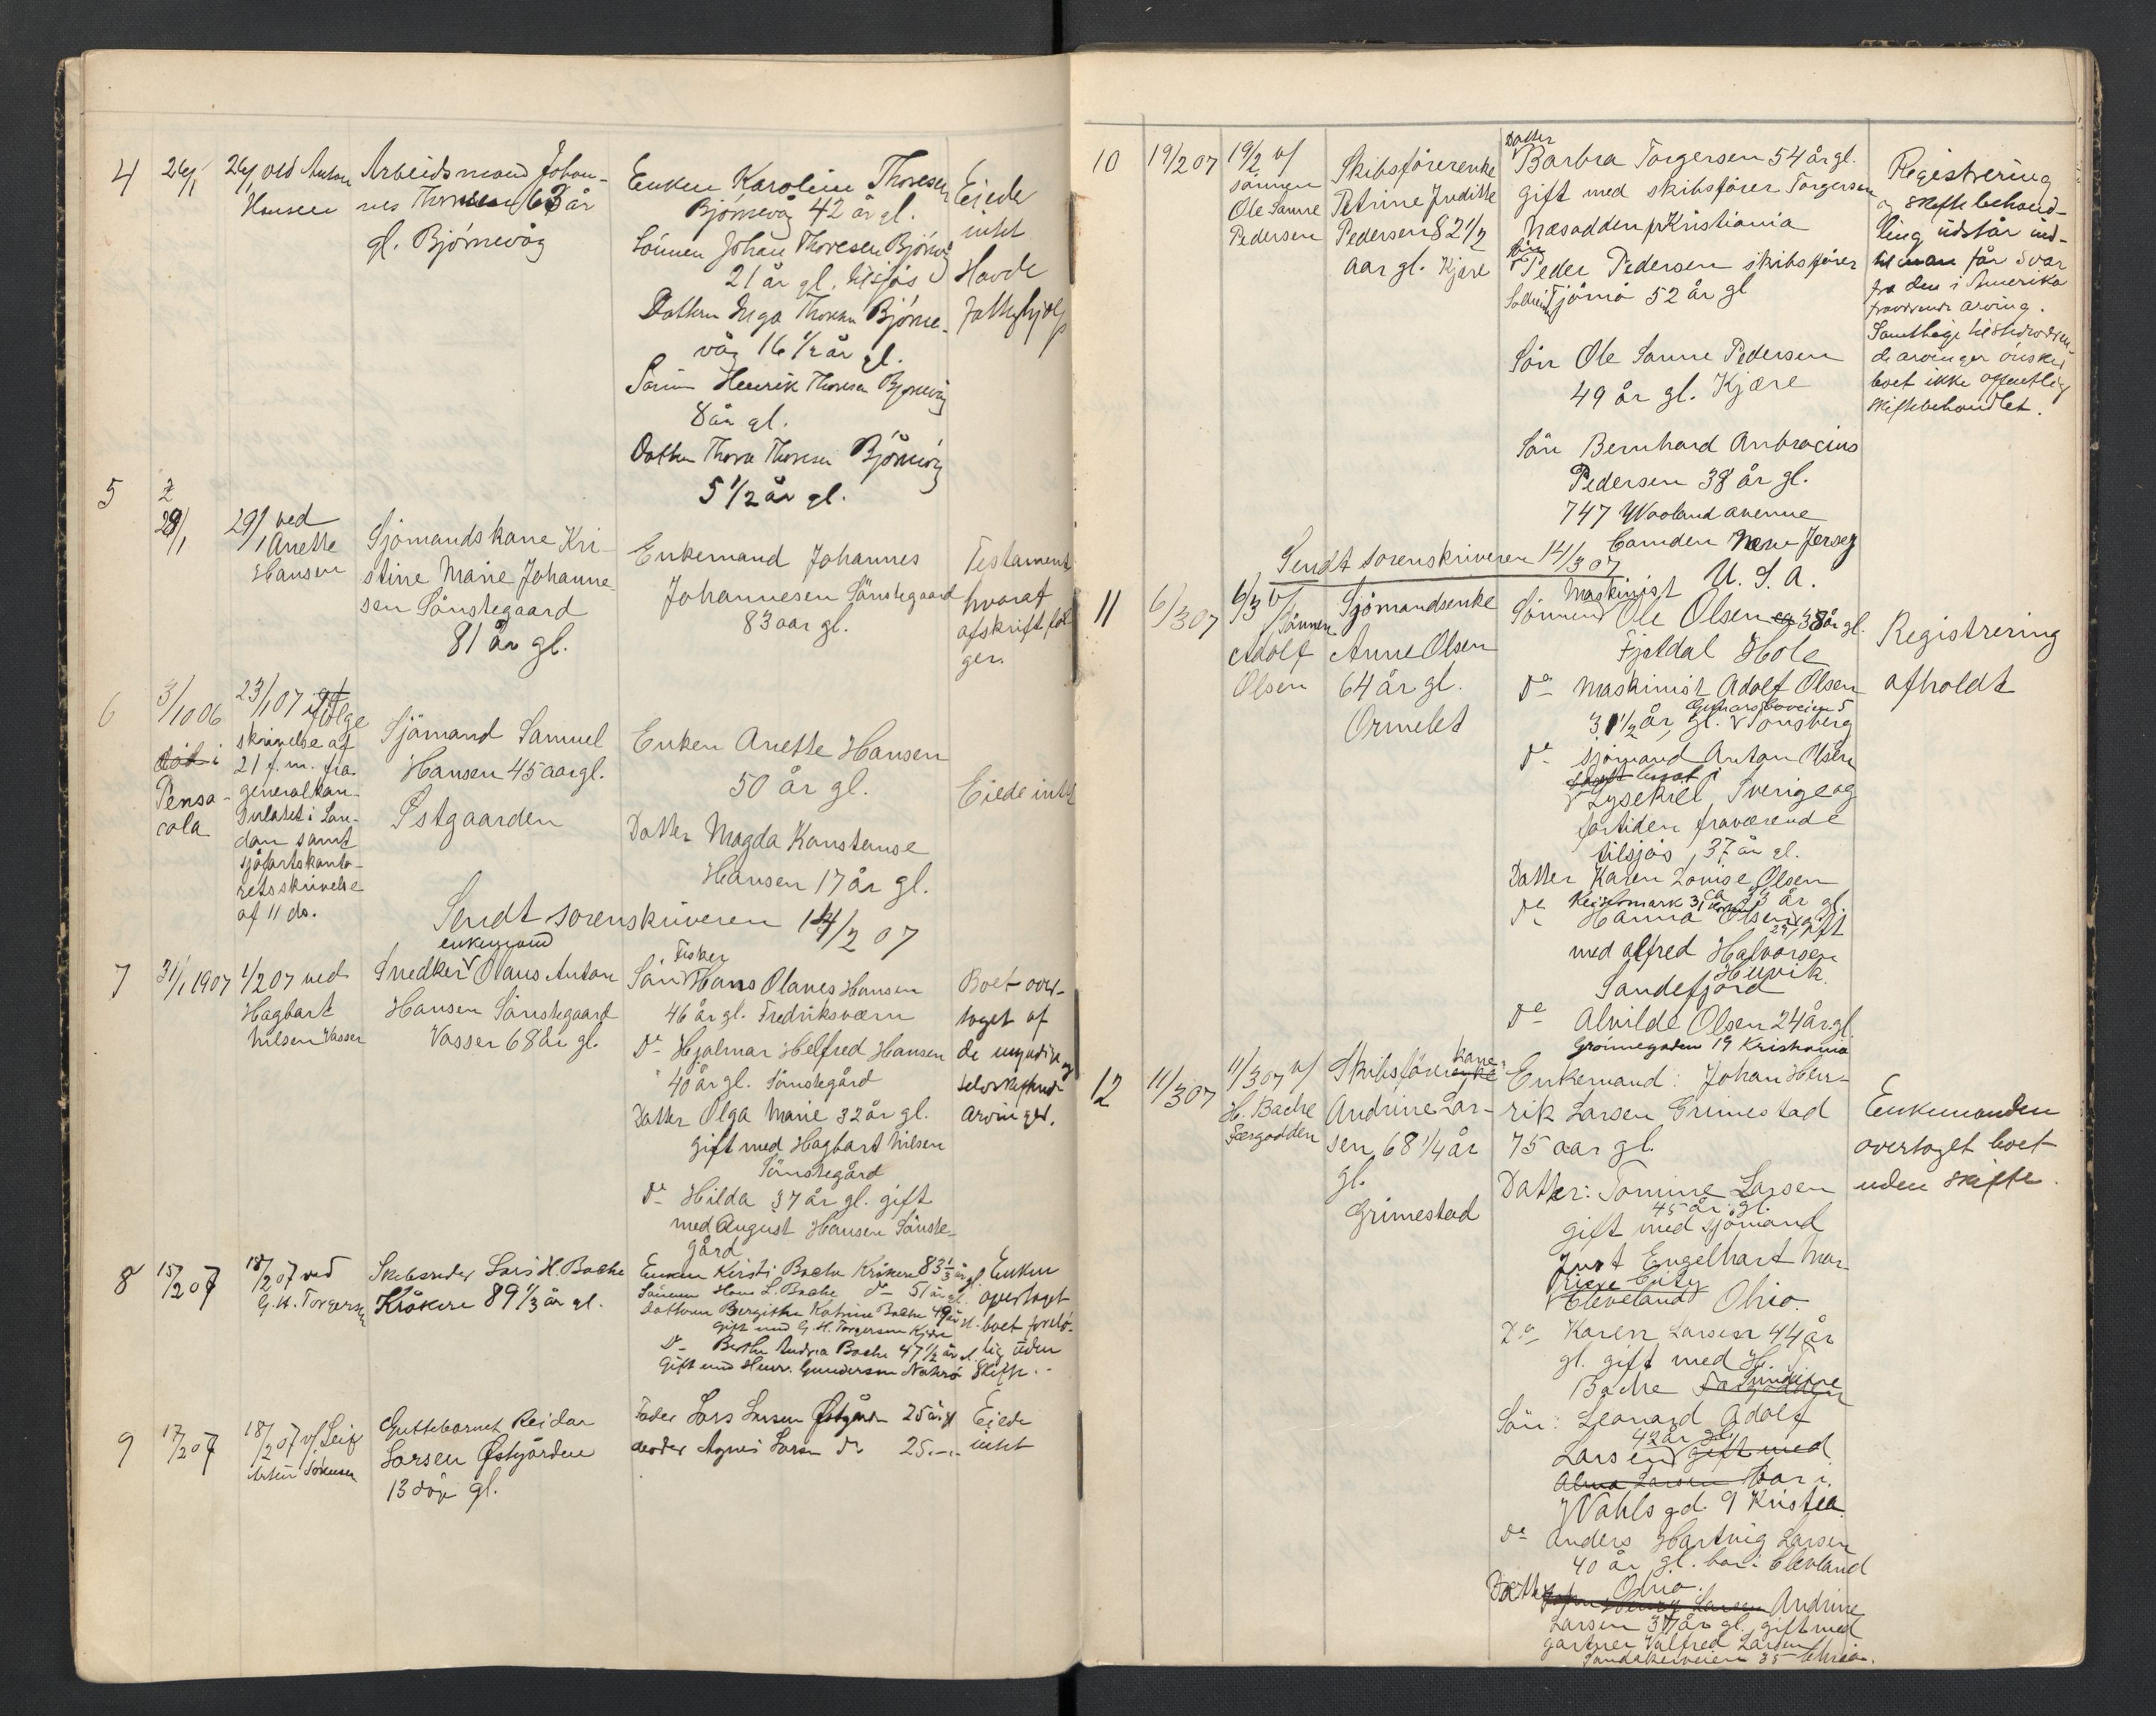 4
26/1
26/1 ved Anton
Hansen
Arbeidsmand Johan-
nes Thoresen 63 år
gl. Bjørnevåg
Enken Karoline Thoresen
Bjørnevåg 42 år gl.
Sönnen Johan Thoresen Björnevåg
21 år gl. tilsjös
Datteren Inga Thoresen Björne-
våg 16 1/2 år gl.
Sönnen Henrik Thoresen Bjørnevåg
8 år gl.
Datter Thora Thoresen Björnevåg
5 1/2 år gl.
Eiede
intet
Havde
fattighjælp
5
29/1
29/1 ved
Anette
Hansen
Sjömandskone Kri-
stine Marie Johanne-
sen Sönstegaard
81 år gl.
Enkemand Johannes
Johannesen Sönstegaard
83 aar gl.
Testament
hvoraf
afskrift føl-
ger.
6
3/10 06
död i
Pensa-
cola
23/1 07 ifölge
skrivelse af
21 f. m. fra
generalkon-
sulatet i Lon-
don samt
sjöfartskonto-
rets skrivelse
af 11 ds.
Sjömand Samuel
Hansen 45 aar gl.
Østgaarden
Enken Anette Hansen
50 år gl.
Datter Magda Konstanse
Hansen 17 år gl.
Eiede intet
Sendt sorenskriveren 14/2 07
7
31/1 1907
1/2 07 ved
Hagbart
Nilsen Vasser
enkemand
Snedker Olaus Anton
Hansen Sönstegaard
Vasser 68 år gl.
Fisker
Sön Hans Olaves Hansen
46 år gl. Fredriksværn
Do Hjalmar Helfred Hansen
40 år gl. Sönstegård
Datter Olga Marie 32 år gl.
gift med Hagbart Nilsen
Sönstegård
Do Hilda 37 år gl. gift
med August Hansen Sönste-
gård
Boet over-
taget af
de myndige og
selvskiftende
arvinger.
8
15/2 07
18/2 07 ved
G. H. Torgersen
Skibsreder Lars H. Bache
Kråkere 89 1/3 år gl.
Enken Kirsti Bache Kråkere 83 1/3 år gl.
Sönnen Hans L. Bache do 51 år gl.
Datteren Bergithe Katrine Bache 49 år gl.
gift med G. H. Torgersen Kjære
Do Berthe Andrea Bache 47 1/2 år gl.
Gift med Henr. Gundersen Nøtterö
Enken
overtaget
boet forelö-
big uden
skifte.
9
17/2 07
18/2 07 v/ Leif
Artur Johnsen
Guttebarnet Reidar
Larsen Østgården
13 døgn gl.
Fader Lars Larsen Østgården 25 år gl
Moder Agnes Larsen do 25 — —
Eiede
intet
10
19/2 07
19/2 v/
sönnen
Ole Sanne
Pedersen
Skibsförerenke
Petrine Judithe
Pedersen 82 1/2
aar gl. Kjære
Datter
Barbra Torgersen 54 år gl.
gift med skibsförer Torgersen
Næsodden pr Kristiania
Sön
Peder Pedersen skibsförer
Solheim Tjömö 52 år gl
Sön Ole Sanne Pedersen
49 år gl. Kjære
Sön Bernhard Anbrocius
Pedersen 38 år gl.
747 Wooland avenue
Camden New Jersey
U. S. A.
Registrering
og skiftebehand-
ling udstår ind-
til man får svar
fra den i Amerika
fraværende arving.
Samtlige tilstedeværen-
de arvinger önsker
boet ikke offentlig
skiftebehandlet.
Sendt sorenskriveren 14/3 07
11
6/3 07
6/3 v/
Sönnen
Adolf
Olsen
Sjömandsenke
Anne Olsen
64 år gl.
Ormelet
Maskinist
Sönnen Ole Olsen ca 38 år gl.
Fjeldal Hole
Do Maskinist Adolf Olsen
31 1/2 år gl. Tönsberg
Do Sjömand Anton Olsen
Lysekiel, Sverige og
fortiden fraværende
tilsjös, 37 år gl.
Datter Karen Lovise Olsen
Do Hanna Olsen gift
med Alfred Halvorsen
Huvik
Sandefjord
Do Alvilde Olsen 24 år gl.
Grönnegaden 19 Kristiania
Registrering
afholdt
12
11/3 07
11/3 07 v/
H. Bache
Færgodden
Skibsförerenke kone
Andrine Lar-
sen, 68 1/4 år
gl.
Grimestad
Enkemand: Johan Hen-
rik Larsen Grimestad
75 aar gl.
Datter: Tomine Larsen
45 år gl.
gift med sjömand
Engelhart
Cleveland Ohio.
Do Karen Larsen 44 år
gl. gift med H. J.
Bache
Sön: Leonard Adolf
42 år gl.
Larsen gift med
Alma Larsen bor i
Wahls gd. 9 Kristia
Do Anders Hartvig Larsen
40 år gl. bor i Clevland
Ohio.
Datter Andrine
Larsen 37 år gl. gift med
gartner Valfred Larsen
35 Chria.
Enkemanden
overtaget boet
uden skifte.